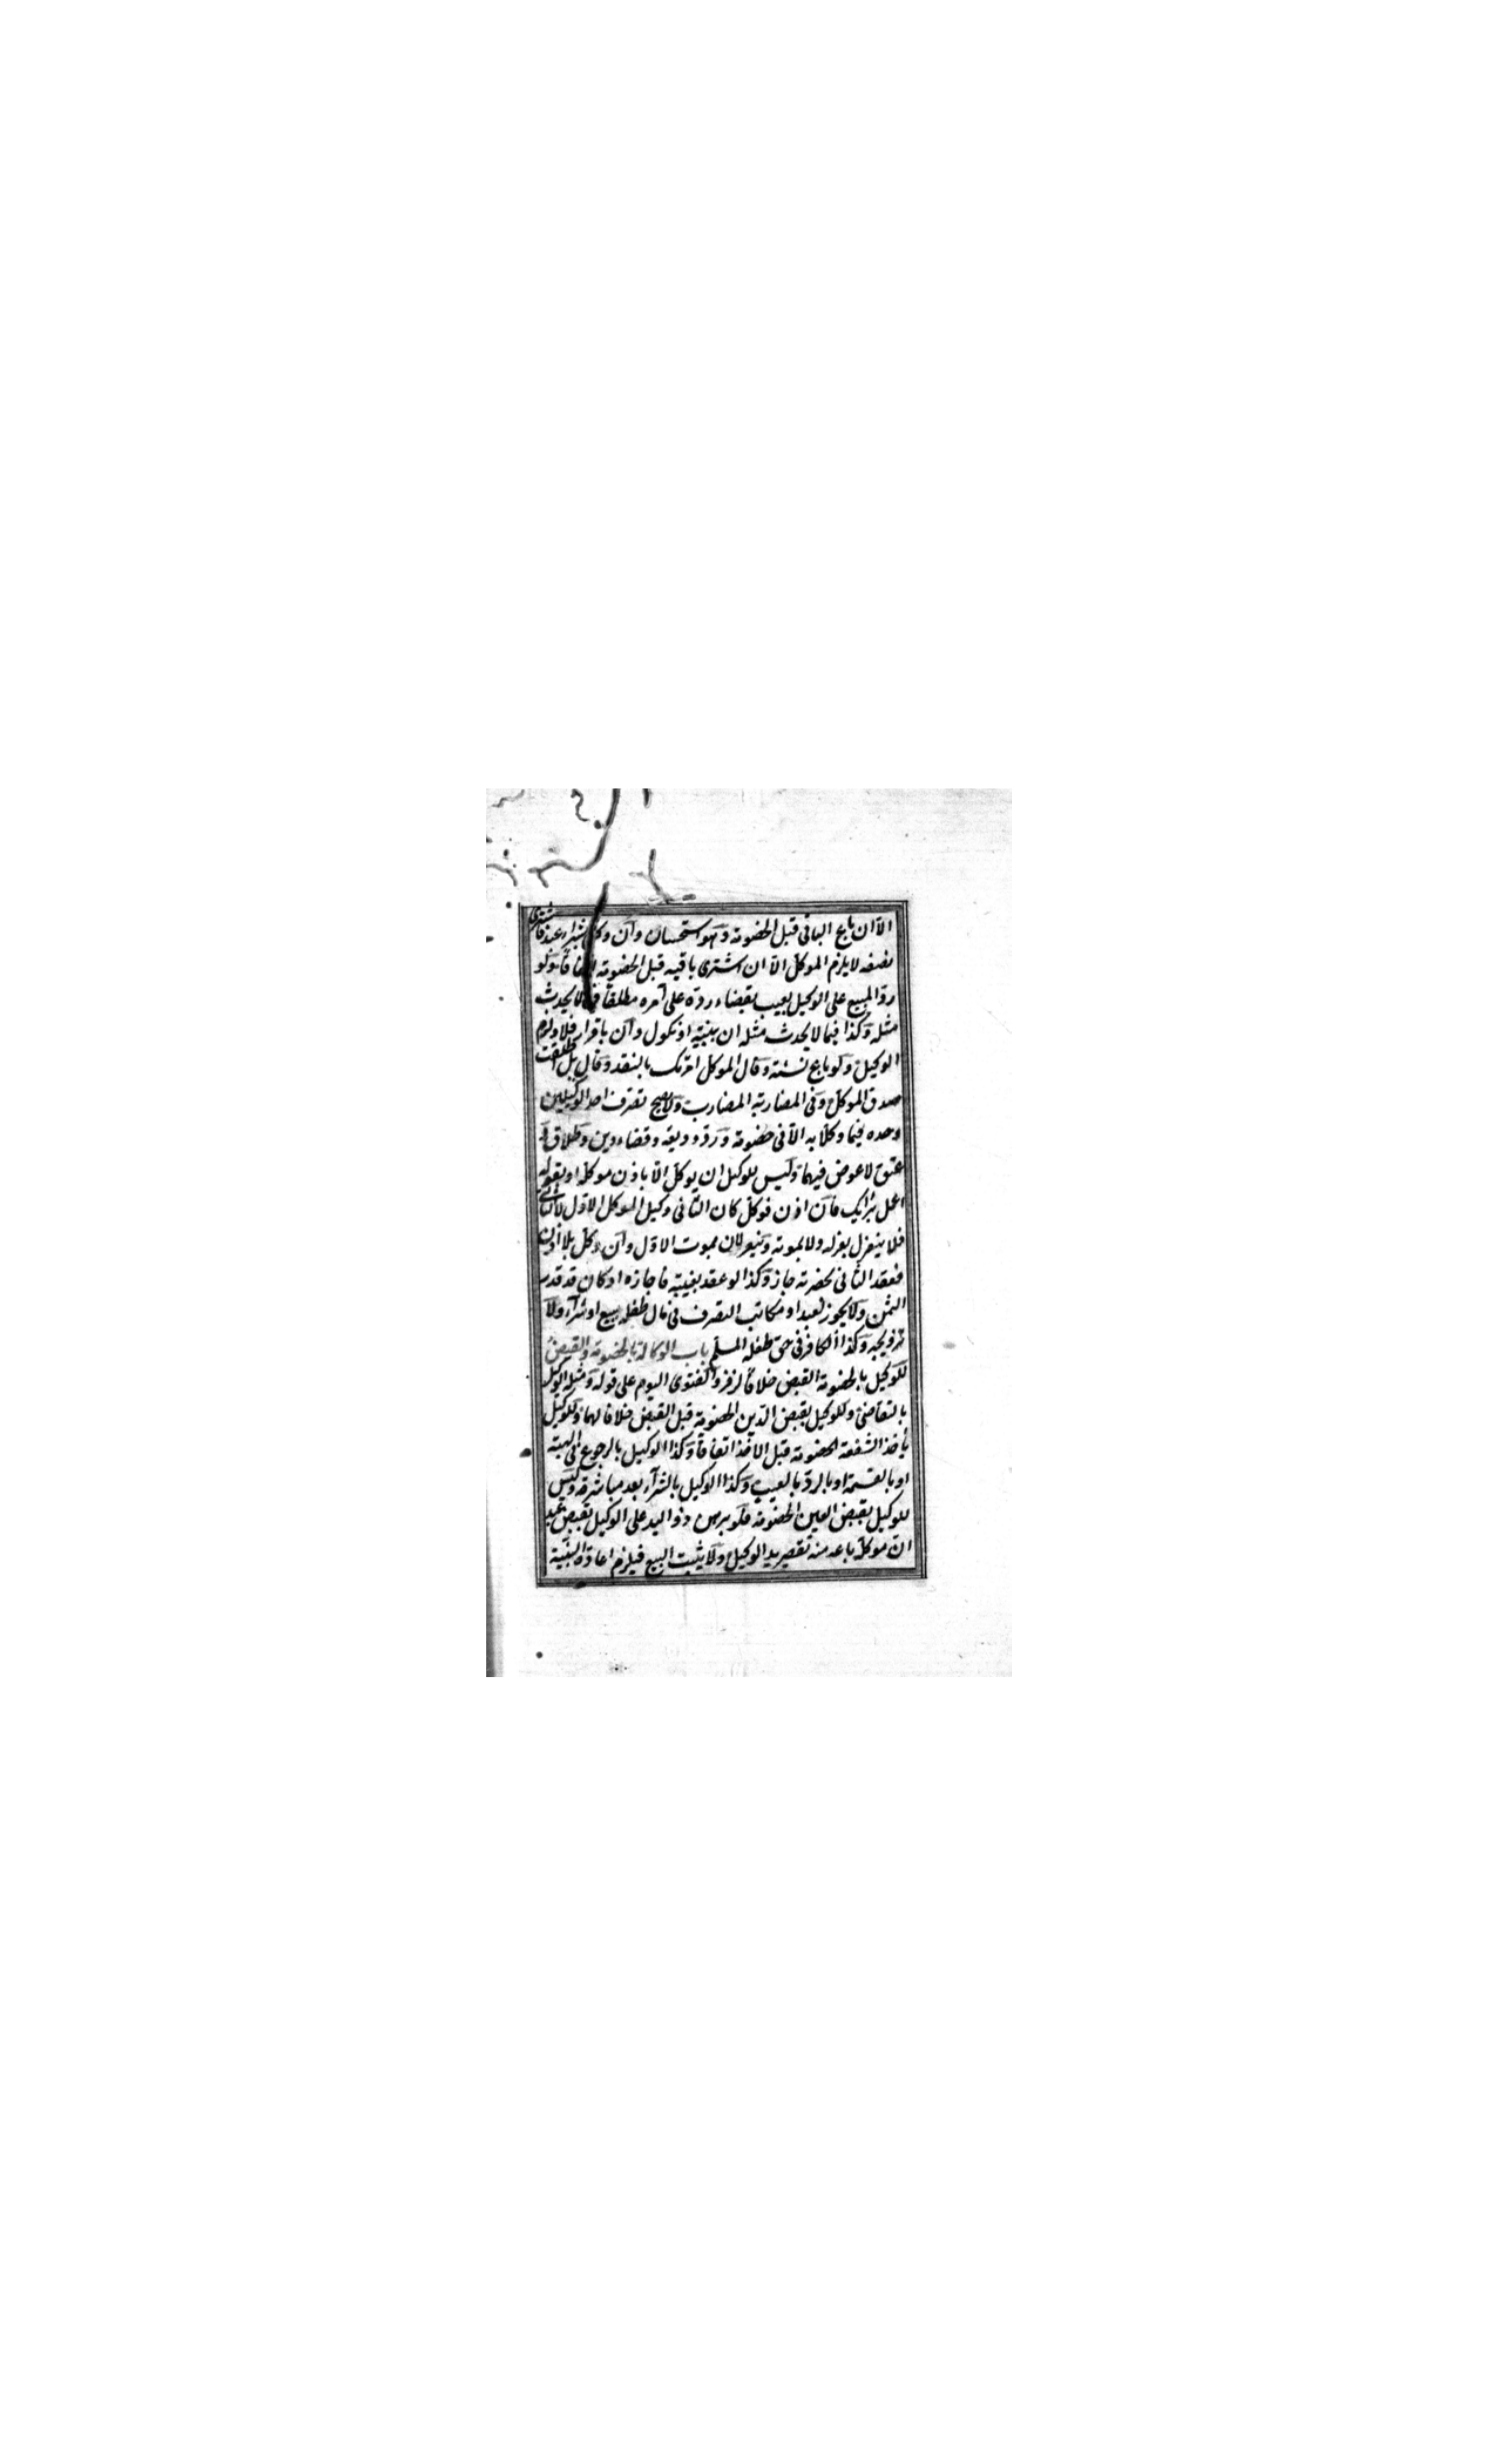 الا ان باع الباقى قبل الخصومة وهو استحسان وان وكل بشراء عبد فاشترى
نصفه لا يلزم الموكل الا ان اشترى باقيه قبل الخصومة اتفاقا ولو
رد المبيع على الوكيل بعيب بقضاء رده على آمره مطلقا فيما لا يحدث
مثله وكذا فيما لا يحدث مثله ان ببينة او نكول وان باقرار فلا ولزم
الوكيل ولو باع نسئة وقال الموكل امرتك بالنقد وقال بل اطلقت
صدق الموكل وفى المضاربة المضارب ولا يصح تصرف احد الوكيلين
وحده فيما وكلا به الا فى خصومة ورد وديعة وقضاء دين وطلاق او
عتق لا عوض فيهما وليس للوكيل ان يوكل الا باذن موكله او بقوله
اعمل برأيك فان اذن فوكل كان الثانى وكيل الموكل الاول لا الثانى
فلا ينعزل بعزله ولا بموته وينعزلان بموت الاول وان وكل بلا اذن
فعقد الثانى بحضرته جاز وكذا لو عقد بغيبته فاجازه او كان قد قدر
الثمن ولا يجوز لعبد او مكاتب التصرف فى مال طفله ببيع او شراء ولا
تزويجه وكذا الكافر فى حق طفله المسلم باب الوكالة بالخصومة والقبض
للوكيل بالخصومة القبض خلافا لزفر والفتوى اليوم على قوله ومثله الوكيل
بالتقاضى وللوكيل بقبض الدين الخصومة قبل القبض خلافا لهما وللوكيل
بأخذ الشفعة الخصومة قبل الاخذ اتفاقا وكذا الوكيل بالرجوع فى الهبة
او بالقسمة او بالرد بالعيب وكذا الوكيل بالشراء بعد مباشرته وليس
للوكيل بقبض العين الخصومة فلو برهن ذو اليد على الوكيل بقبض عبد
ان موكله باعه منه تقصر يد الوكيل ولا يثبت البيع فيلزم اعادة البينة